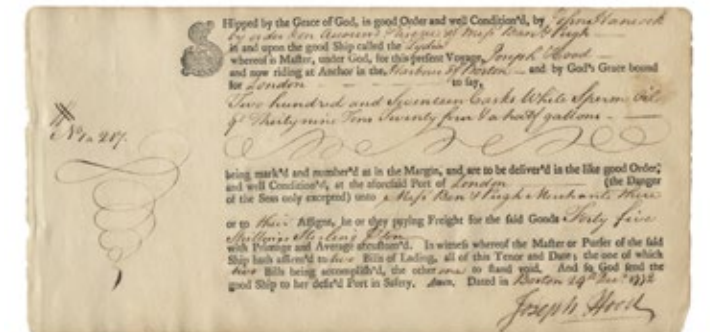 SHipped by the Grace of God, in good Order and well Condition'd, by John Hancock
by order on Account & risque of Mess
in and upon the good Ship called the Lydia
whereof is Master, under God, for this present Voyage, Joseph Hood
and now riding at Anchor in the Harbour of Boston and by God's Grace bound
for London to say,
Two hundred and Seventeen Casks White Sperm Oil
Thirty nine Tons Twenty four & a half gallons
No 1 a 217.
being mark'd and number'd as in the Margin, and are to be deliver'd in the like good Order,
and well Condition'd, at the aforesaid Port of London (the Danger
of the Seas only excepted) unto Mess Merchants there
or to their Assigns, he or they paying Freight for the said Goods Forty five
Shillings Sterling
with Primage and Average accustom'd. In witness whereof the Master or Purser of the said
Ship hath affirm'd to two Bills of Lading, all of this Tenor and Date; the one of which
two Bills being accomplish'd, the other one to stand void. And so God send the
good Ship to her desir'd Port in Safety, Amen. Dated in Boston 24th Decr 1772
Joseph Hood